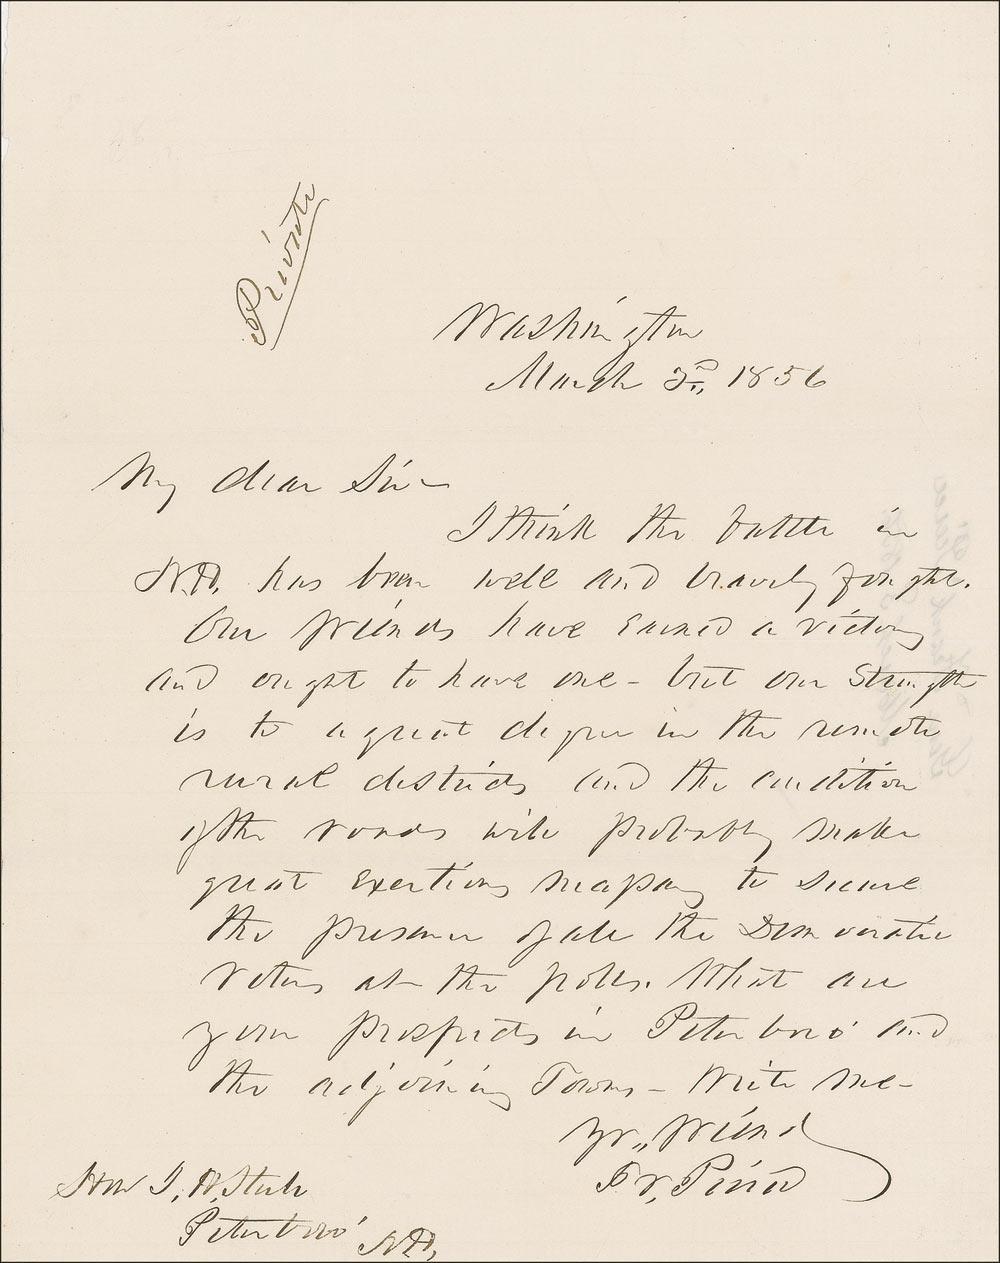 Private
Washington
March 3d, 1856
My dear Sir -
I think the battle in
N.H. has been well and bravely fought.
Our friends have earned a victory
and ought to have one - but our strength
is to a great degree in the remote
rural districts and the condition
of the roads will probably make
great exertions necessary to secure
the presence of all the Democratic
voters at the polls. What are
your prospects in Peterboro' and
the adjoining Towns - Write me -
Yr,, friend
Fr. Pierce
Hon J. H. Steele
Peterboro'
N.H.